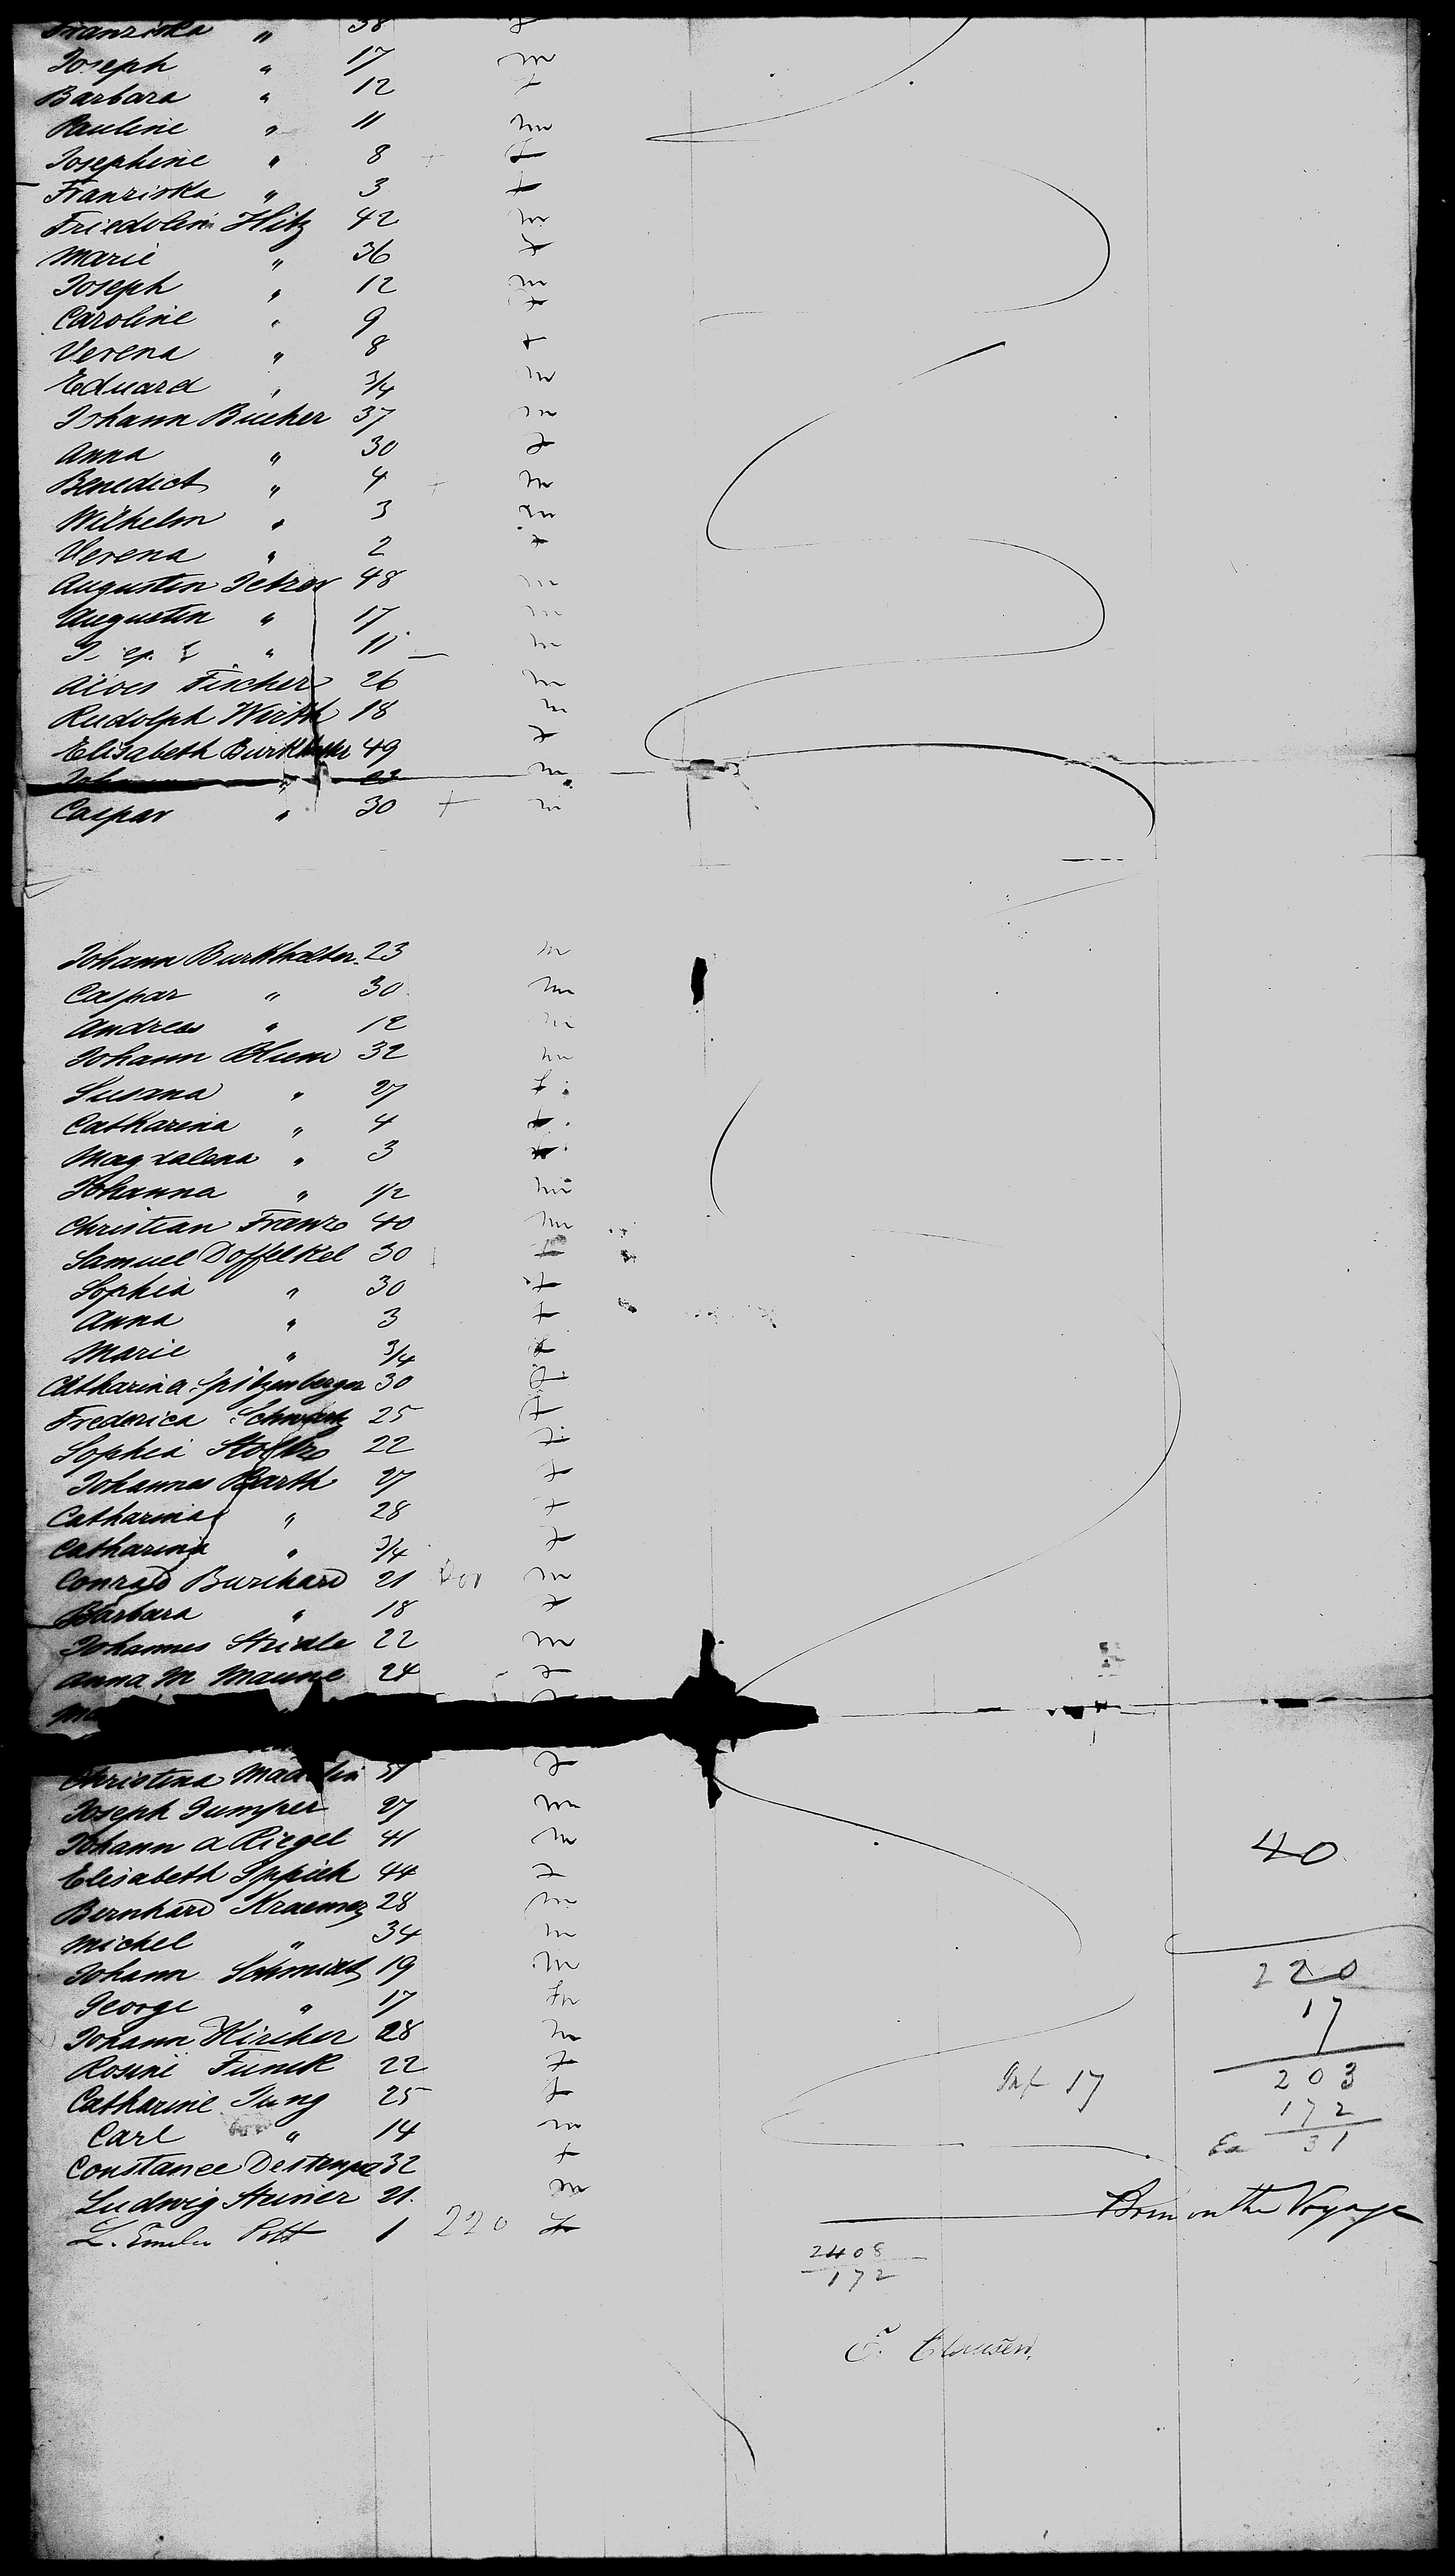 Franziska " 38 f
Joseph " 17 m
Barbara " 12 f
Pauline " 11 m
Josephine " 8 + f
Franziska " 3 f
Friedolin Hitz 42 m
Marie " 36 f
Joseph " 12 m
Caroline " 9 f
Verena " 8 f
Eduard " 3/4 m
Johann Bucher 37 m
Anna " 30 f
Benedict " 4 + m
Wilhelm " 3 m
Verena " 2 f
Augustin 48 m
Augustin " 17 m
" 11 m
Alois Fischer 26 m
Rudolph Wirth 18 m
Elisabeth Burkhalter 49 f
Joh " 23 m
Caspar " 30 + m
Johann Burkhalter 23 m
Caspar " 30 m
Andreas " 12 m
Johann Blum 32 m
Susana " 27 f
Catharina " 4 f
Magdalena " 3 f
Johanna " 1/2 m
Christian Franz 40 m
Samuel Doffelkel 30 f
Sophia " 30 f
Anna " 3 f
Marie " 3/4 f
Catharina Spitzenberger 30 f
Frederica Schwartz 25 f
Sophia 22 f
Johannes Barth 27 f
Catharina " 28 f
Catharina " 3/4 f
Conrad Burchard 21 m
Barbara " 18 f
Johannes Striale 22 m
Anna M Maune 24 f
Ma f
Christina 51 f
Joseph Gumper 27 m
Johann A Riegel 41 m
40
Elisabeth Ippich 44 f
Bernhard Kraemer 28 m
Michel " 34 m
Johann Schmidt 19 m
220
George " 17 m
17
Johann Kircher 28 m
Rosine Funck 22 f
Inf 17
203
Catharine Jung 25 f
172
Carl " 14 m
31
Constance Destempe 32 f
Ludwig Steiner 21. m
Born on the Voyage
L. Emilie Pott 1 220 f
2408
172
E. Clausen.